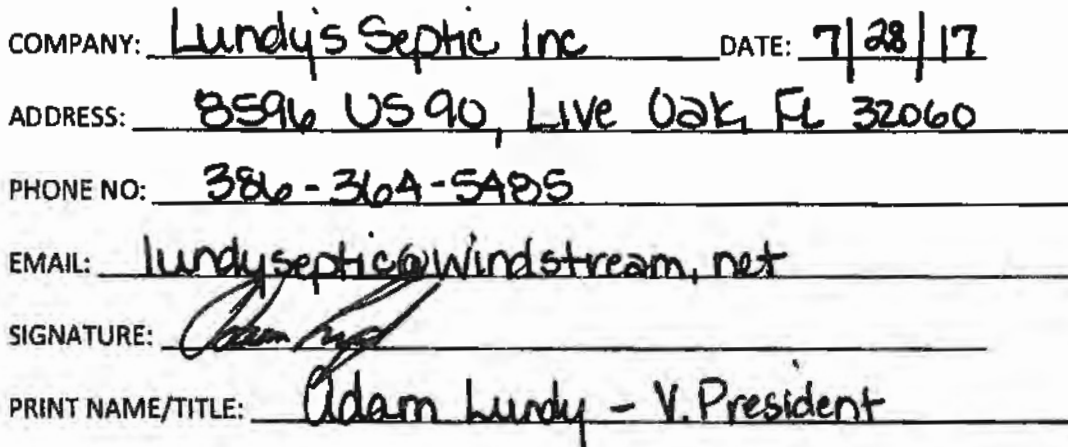 COMPANY: Lundy's Septic Inc DATE: 7/28/17
ADDRESS: 8596 US 90, Live Oak, FL 32060
PHONE NO: 386-364-5485
EMAIL: lundyseptic@windstream.net
SIGNATURE:
PRINT NAME/TITLE: Adam Lundy - V. President